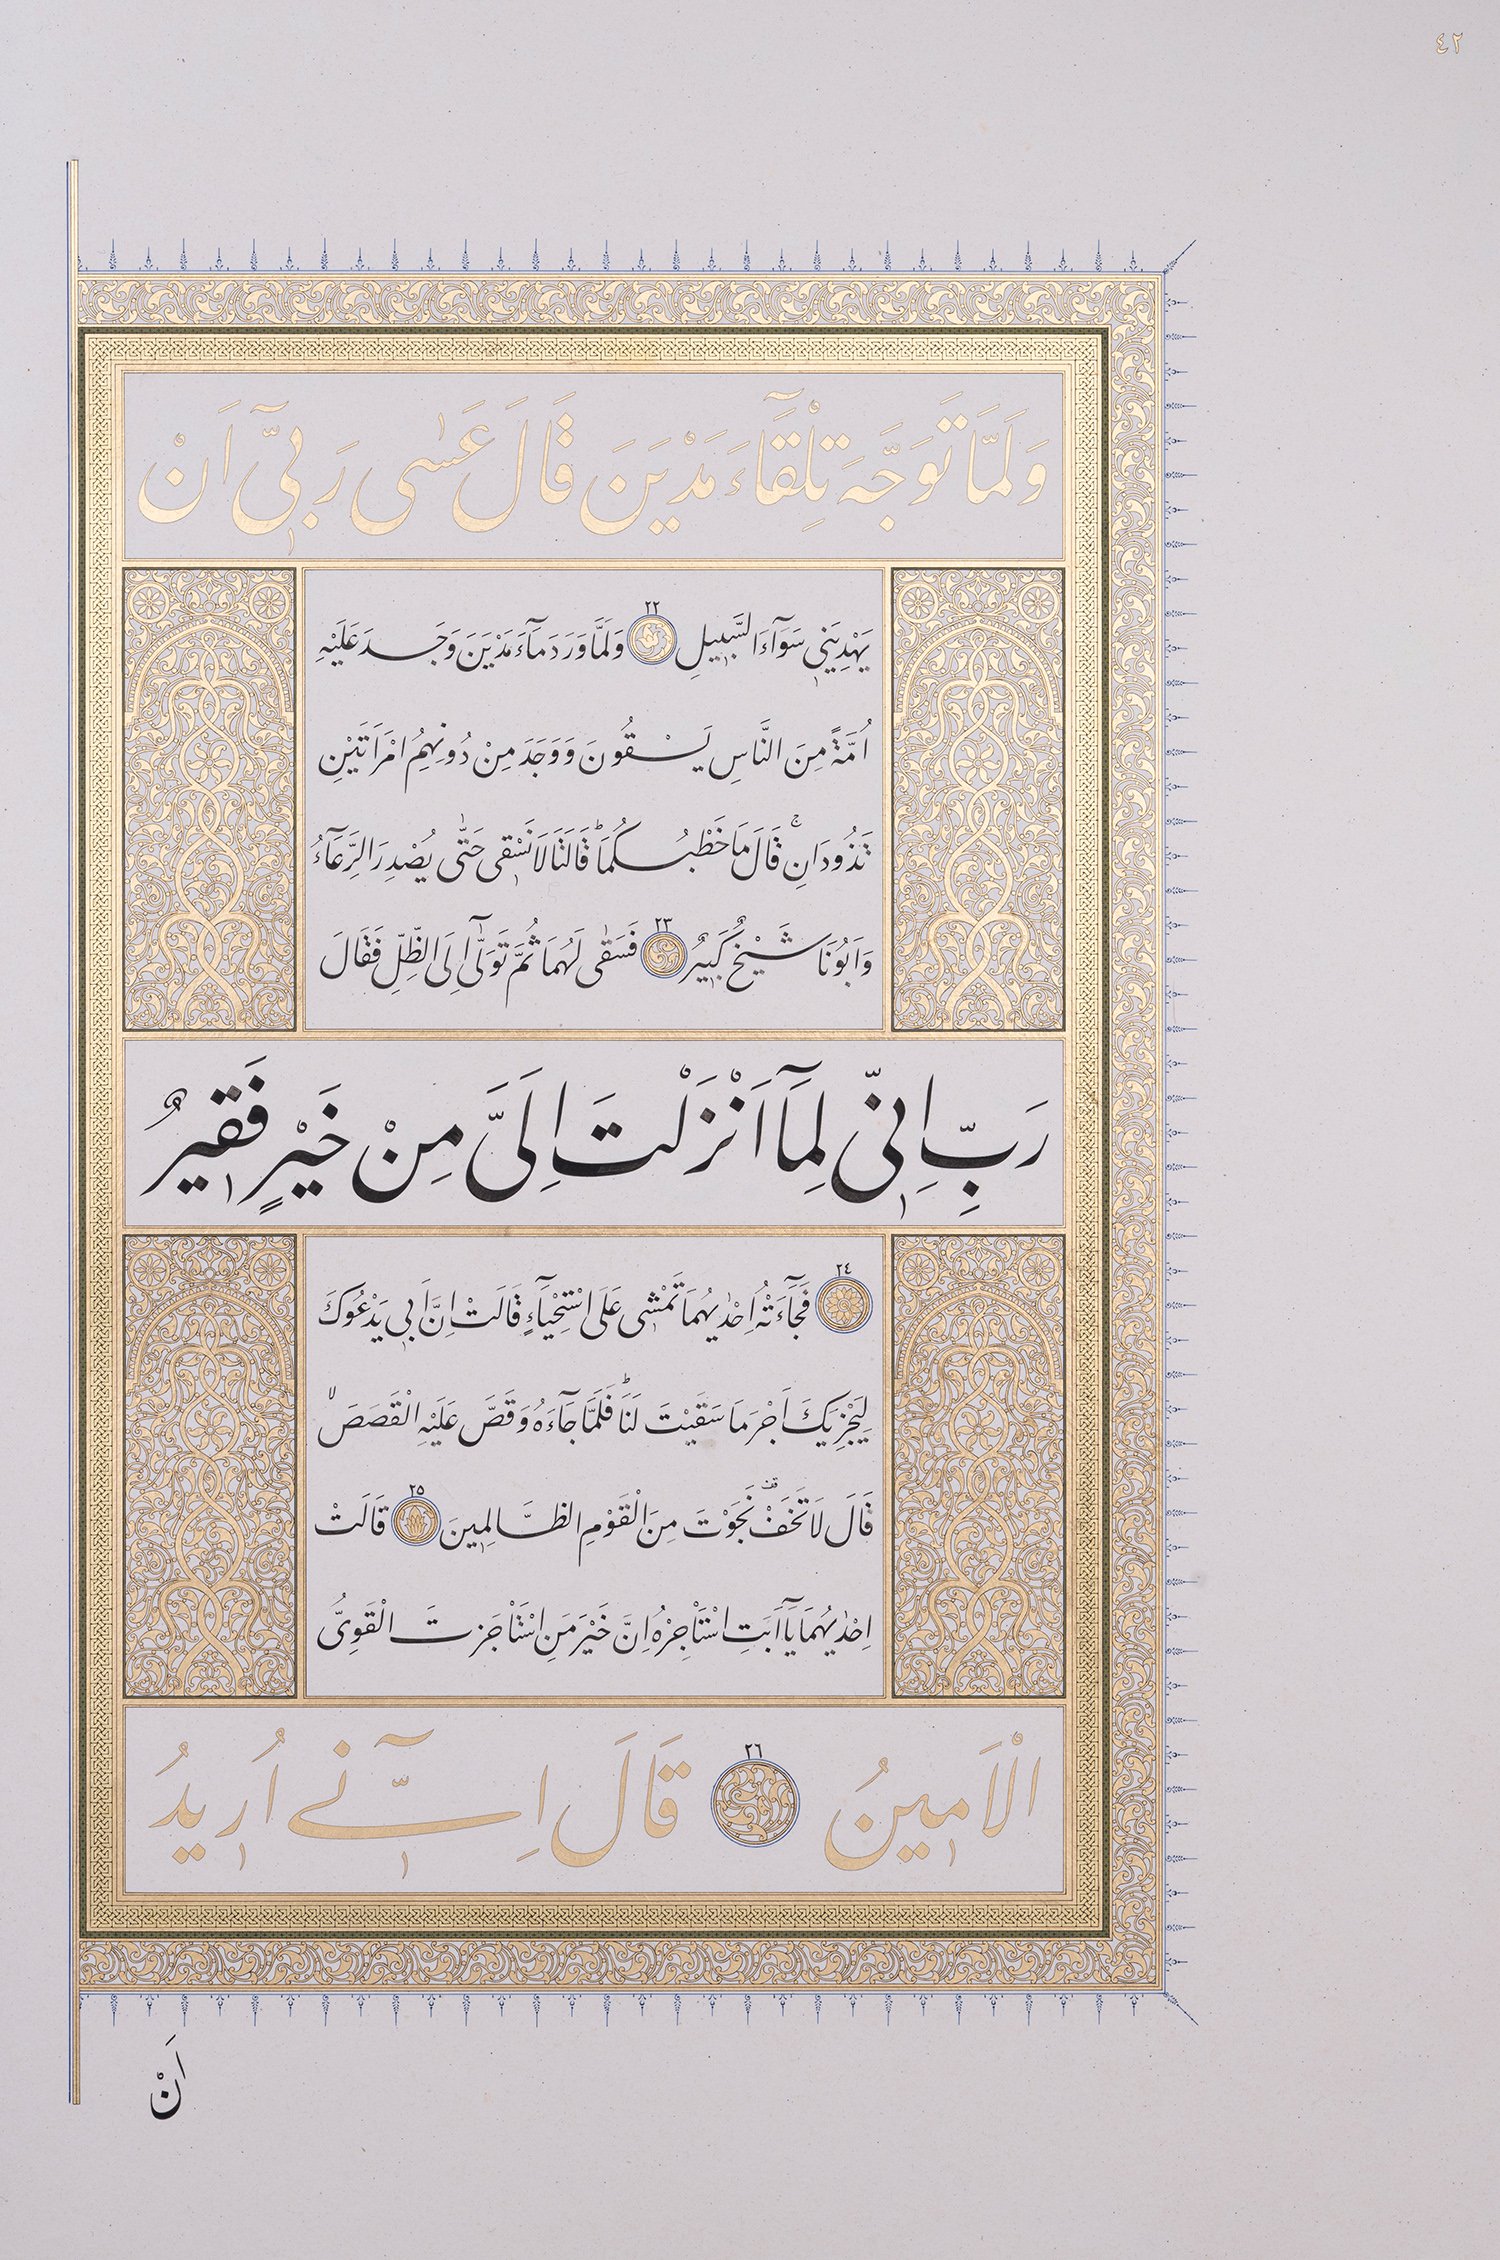 ٤٢
وَلَمَّا تَوَجَّهَ تِلْقَٓاءَ مَدْيَنَ قَالَ عَسٰى رَبّ۪ٓي اَنْ
يَهْدِيَن۪ي سَوَٓاءَ السَّب۪يلِ ٢٢ وَلَمَّا وَرَدَ مَٓاءَ مَدْيَنَ وَجَدَ عَلَيْهِ
اُمَّةً مِنَ النَّاسِ يَسْقُونَ وَوَجَدَ مِنْ دُونِهِمُ امْرَاَتَيْنِ
تَذُودَانِۚ قَالَ مَا خَطْبُكُمَاۜ قَالَتَا لَا نَسْق۪ي حَتّٰى يُصْدِرَ الرِّعَٓاءُ
وَاَبُونَا شَيْخٌ كَب۪يرٌ ٢٣ فَسَقٰى لَهُمَا ثُمَّ تَوَلّٰٓى اِلَى الظِّلِّ فَقَالَ
رَبِّ اِنّ۪ي لِمَٓا اَنْزَلْتَ اِلَيَّ مِنْ خَيْرٍ فَق۪يرٌ
٢٤ فَجَٓاءَتْهُ اِحْدٰيهُمَا تَمْش۪ي عَلَى اسْتِحْيَٓاءٍ قَالَتْ اِنَّ اَب۪ي يَدْعُوكَ
لِيَجْزِيَكَ اَجْرَ مَا سَقَيْتَ لَنَاۜ فَلَمَّا جَٓاءَهُ وَقَصَّ عَلَيْهِ الْقَصَصَۙ
قَالَ لَا تَخَفْ۠ نَجَوْتَ مِنَ الْقَوْمِ الظَّالِم۪ينَ ٢٥ قَالَتْ
اِحْدٰيهُمَا يَٓا اَبَتِ اسْتَأْجِرْهُ اِنَّ خَيْرَ مَنِ اسْتَأْجَرْتَ الْقَوِيُّ
الْاَم۪ينُ ٢٦ قَالَ اِنّ۪ٓي اُر۪يدُ
اَنْ